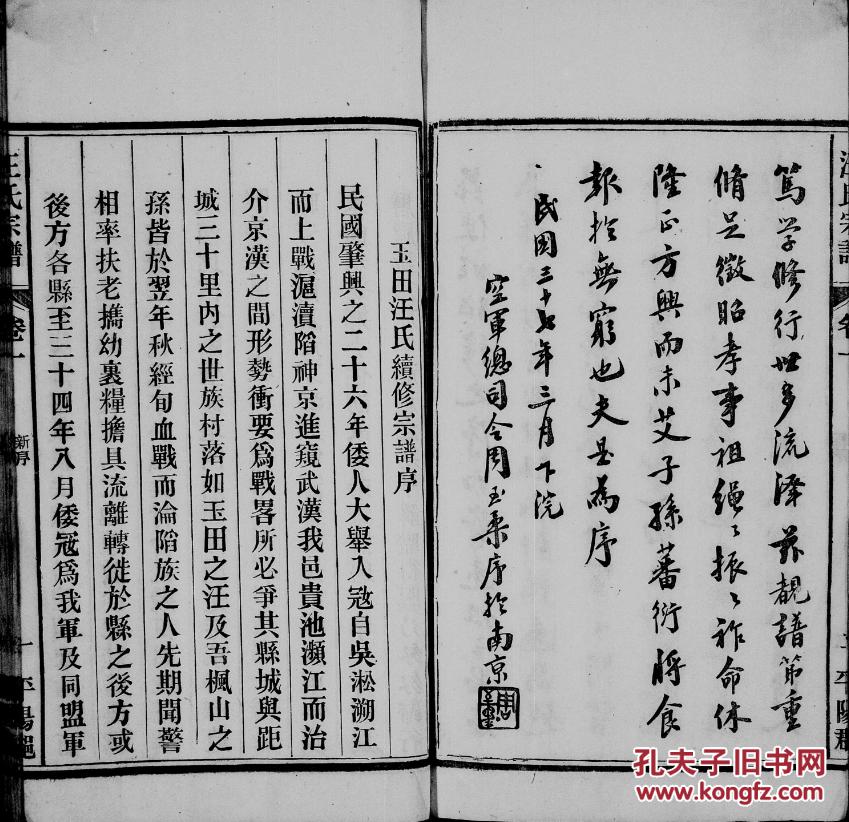 篤學修行世多流澤茲覩譜第重
脩足徵昭孝事祖繩〻振〻祚命休
隆正方興而未艾子孫蕃衍將食
報於無窮也夫是為序
民國三十七年三月下浣
空軍總司令周至柔序於南京
玉田汪氏續修宗譜序
民國肇興之二十六年倭人大舉入寇自吳淞溯江
而上戰滬瀆陷神京進窺武漢我邑貴池瀕江而治
介京漢之間形勢衝要爲戰畧所必爭其縣城與距
城三十里内之世族村落如玉田之汪及吾楓山之
孫皆於翌年秋經旬血戰而淪陷族之人先期聞警
相率扶老擕幼裹糧擔具流離轉徙於縣之後方或
後方各縣至三十四年八月倭寇爲我軍及同盟軍
汪氏宗譜
卷一
新序
一
平陽
汪氏宗譜
卷一
平陽郡
孔夫子旧书网
KONGFZ.COM